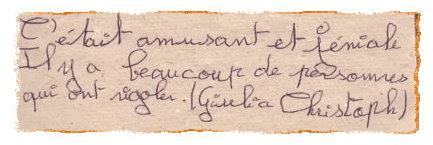 C'était amusant et géniale
Il y a beaucoup de personnes
qui ont rigoler. (Giulia Christoph)